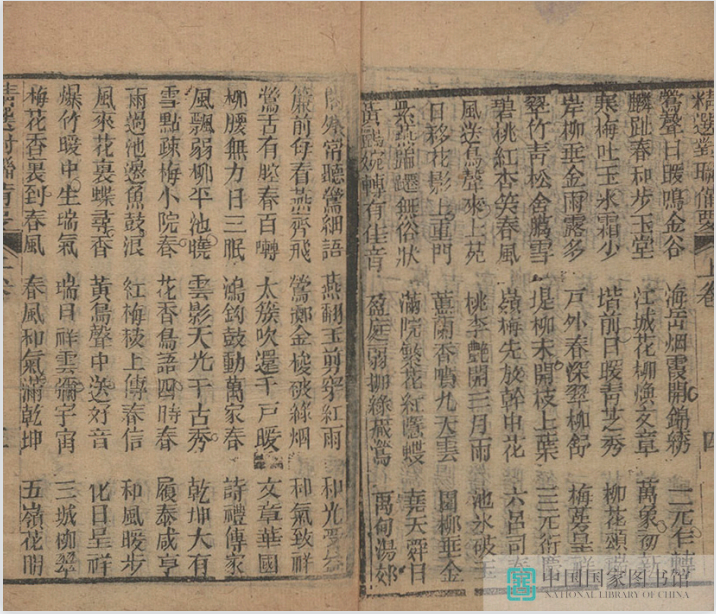 精選對聯備要 上卷 四
鶯聲日暖鳴金谷 海岳烟霞開錦綉 二元乍轉
麟趾春和步玉堂 江城花柳煥文章 萬象初新
寒梅吐玉氷霜少 堦前日暖青芝秀 柳花頌
岸柳垂金雨露多 戶外春深翠柳舒 梅萼呈祥
翠竹青松舍臘雪 堤柳未開枝上葉 三元衍
碧桃紅杏笑春風 嶺梅先放幹中花 六呂司春
風送鳥聲來上苑 桃李艷開三月雨 池氷破玉
日移花影上重門 蕙蘭香噴九天雲 園柳垂金
紫燕喃喃無俗狀 滿院繁花紅隱蝶 堯天舜日
黃鸝婉轉有佳音 盈庭弱柳綠藏鶯 禹甸湯郊
常聽鶯細語 燕翻玉剪穿紅雨 和光
簾前每看燕齊飛 鶯擲金梭破綠烟 和氣致祥
鶯舌有腔春百囀 太簇吹還千戶暖 文章華國
柳腰無力日三眠 鴻鈞鼓動萬家春 詩禮傳家
風飄弱柳平池曉 雲影天光千古秀 乾坤大有
雪點疎梅小院春 花香鳥語四時春 履泰咸亨
雨過池邊魚鼓浪 紅梅稜上傳春信 和風暖步
風來花裏蝶尋香 黃鳥聲中送好音 化日呈祥
爆竹暖中生瑞氣 瑞日祥雲彌宇宙 三城柳翠
梅花香裏到春風 春風和氣滿乾坤 五嶺花開
中国国家图书馆
NATIONAL LIBRARY OF CHINA